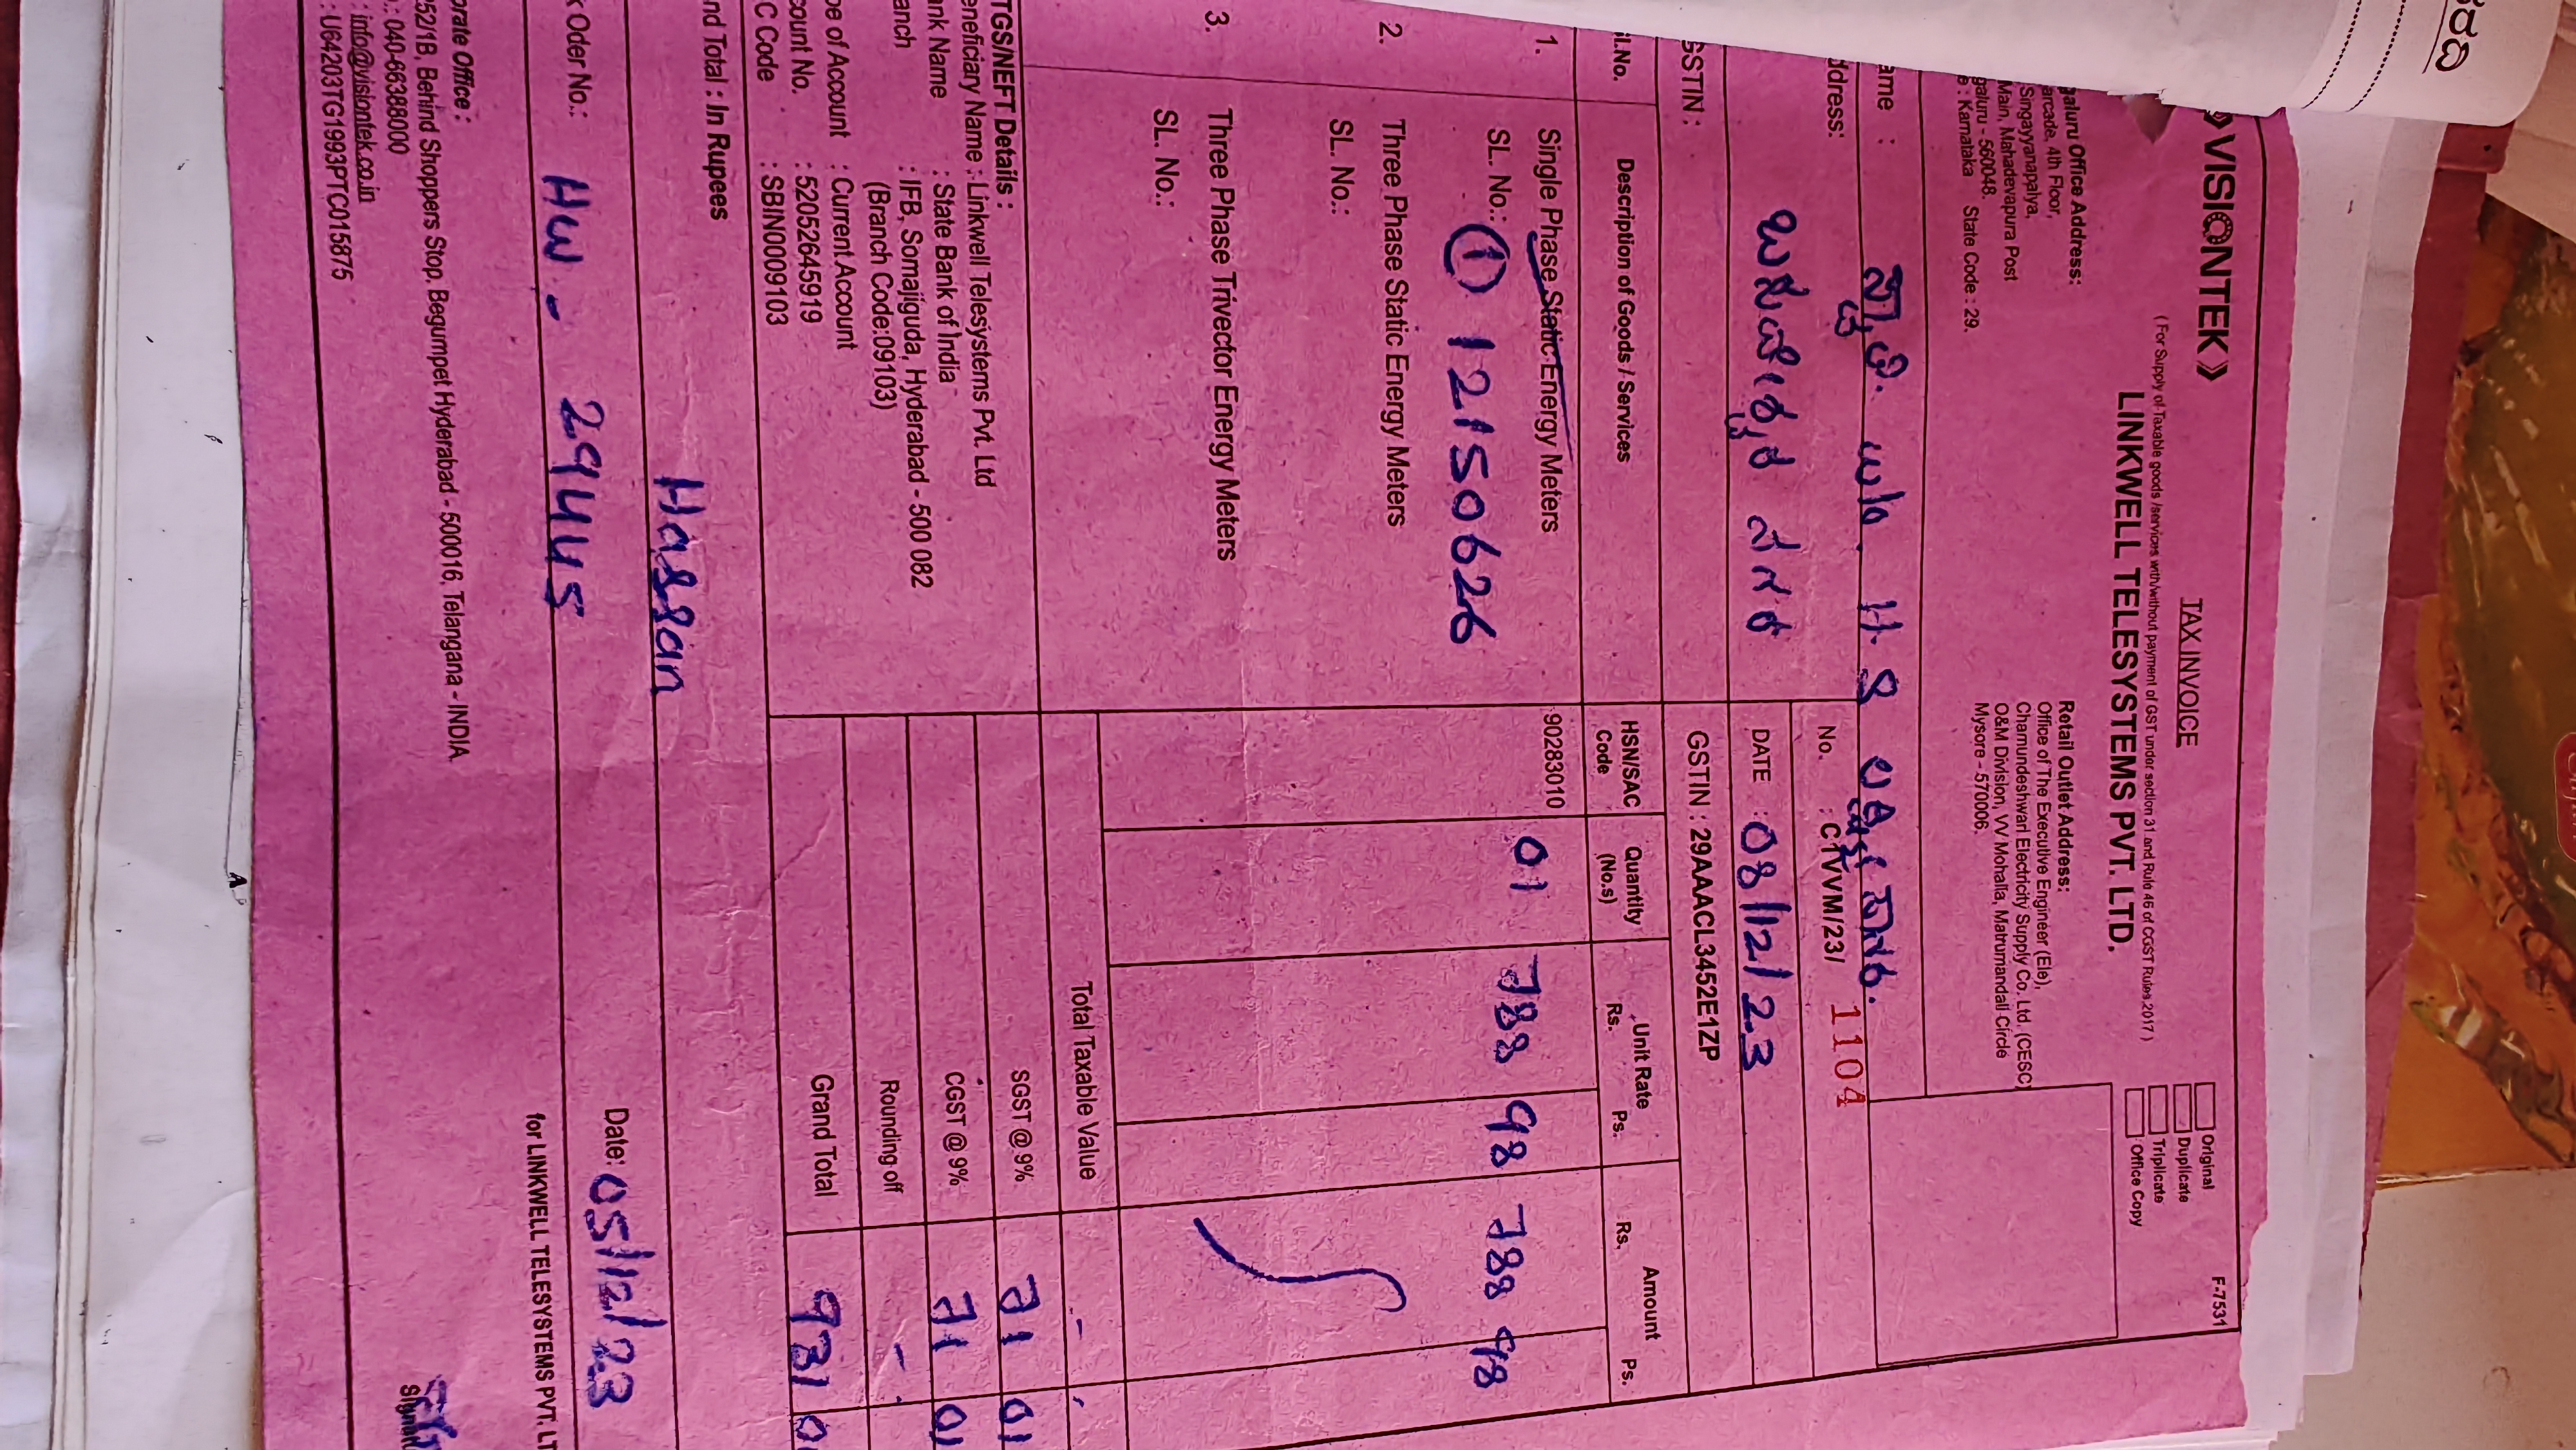 VISIONTEK》
TAX INVOICE
F-7531
( For Supply of Taxable goods /services with/without payment of GST under section 31 and Rule 46 of CGST Rules 2017 )
LINKWELL TELESYSTEMS PVT. LTD.
Original
Duplicate
Triplicate
Office Copy
galuru Office Address:
arcade, 4th Floor,
Singayyanapalya,
Main, Mahadevapura Post
galuru - 560048.
e : Karnataka State Code : 29.
Retail Outlet Address:
Office of The Executive Engineer (Ele),
Chamundeshwari Electricity Supply Co. Ltd. (CESC)
O&M Division, V V Mohalla, Matrumandali Circle
Mysore - 570006.
ame :
ddress:
No. : C1VVM/23/ 1104
DATE : 08/12/23
GSTIN :
GSTIN : 29AAACL3452E1ZP
Sl.No. Description of Goods / Services HSN/SAC Code Quantity (No.s) Unit Rate Rs. Ps. Amount Rs. Ps.
1. Single Phase Static Energy Meters 90283010 01 788 98 788 98
SL. No.: 1 12150626
2. Three Phase Static Energy Meters
SL. No.:
3. Three Phase Trivector Energy Meters
SL. No.:
Total Taxable Value - -
TGS/NEFT Details :
eneficiary Name : Linkwell Telesystems Pvt. Ltd
ank Name : State Bank of India
anch : IFB, Somajiguda, Hyderabad - 500 082
(Branch Code:09103)
pe of Account : Current Account
count No. : 52052645919
C Code : SBIN0009103
SGST @ 9% 71 01
CGST @ 9% 71 01
Rounding off - -
Grand Total 931 0
nd Total : In Rupees
Hassan
k Oder No.: HW - 29445 Date: 05/12/23
for LINKWELL TELESYSTEMS PVT. LT
orate Office :
52/1B, Behind Shoppers Stop, Begumpet Hyderabad - 500016, Telangana - INDIA
.: 040-66388000
: info@visiontek.co.in
: U64203TG1993PTC015875